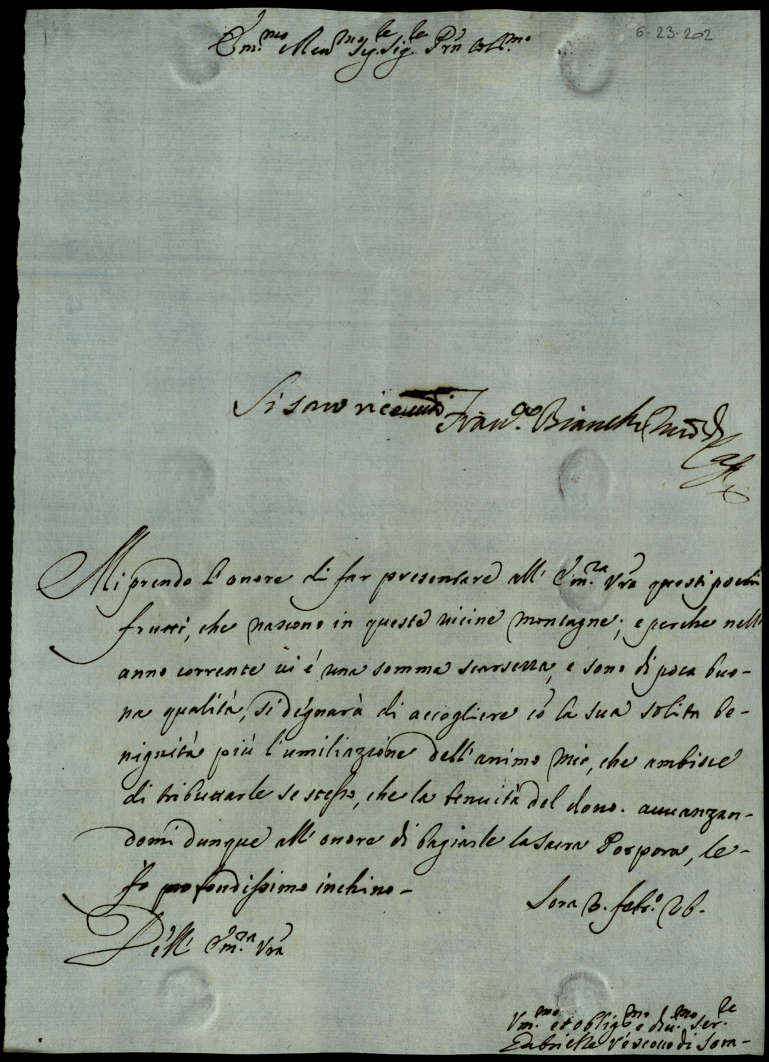 6-23-202
Em.mo e Rev.mo Sig.re Sig.re Prn Col.mo
Si sono ricevuti
Fran.co Bianchi
Mi prendo l'onore di far presentare all' Em.za Vrã questi pochi
frutti, che nascono in queste vicine montagne; e perche nell
anno corrente vi é una somma scarsezza, e sono di poca buo-
na qualità, si degnarà di accogliere cõ la sua solita be-
nignità più l'umiliazione dell'animo mio, che ambisce
di tributarle se stesso, che la tenuità del dono. auuanzan-
domi dunque all' onore di bagiarle la Sacra Porpora, le-
fo profondissimo inchino-
Sora 3. feb.o 26.
Dell' Em.za Vrã
Vm.mo et oblig.mo e diu.mo ser.re
Gabrielle Vescovo di Sora-